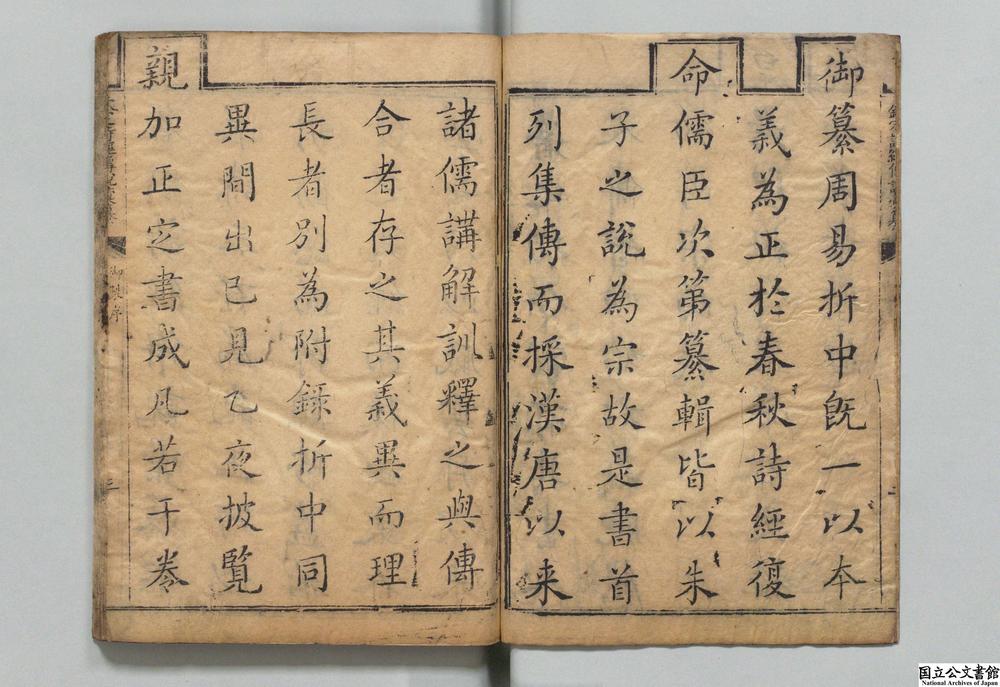 御纂周易折中旣一以本
義為正於春秋詩經復
命儒臣次第纂輯皆以朱
子之說為宗故是書首
列集傳而採漢唐以来
諸儒講解訓釋之與傳
合者存之其義異而理
長者別為附錄折中同
異間出己見乙夜披覽
親加正定書成凡若干卷
御製序
三
国立公文書館
National Archives of Japan